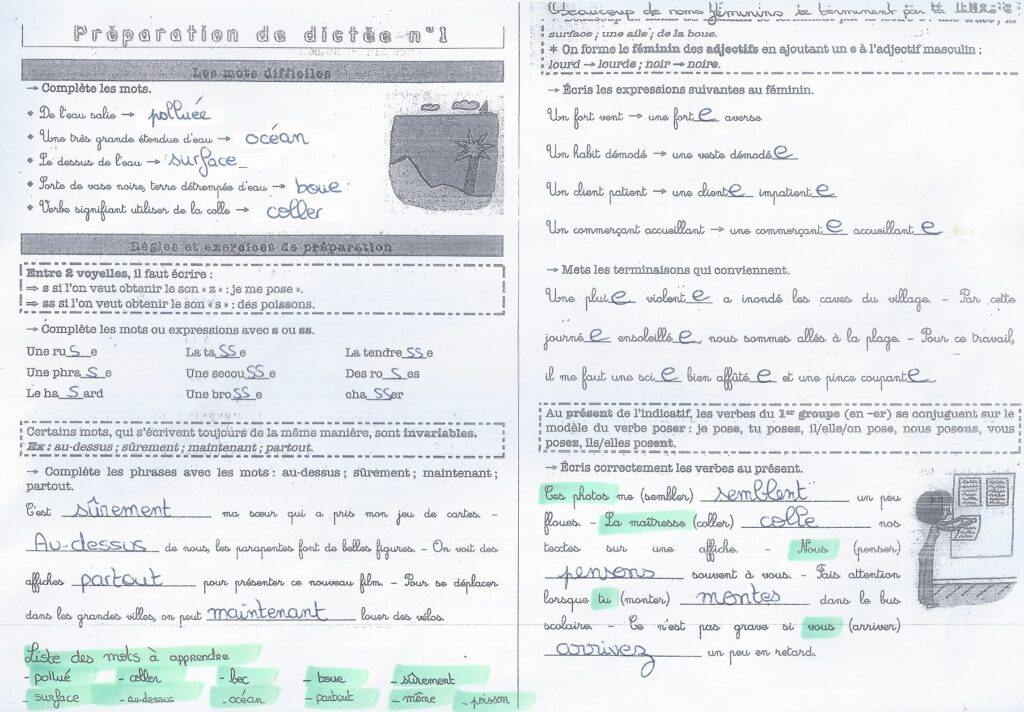 Préparation de dictée n°1
Les mots difficiles
→ Complète les mots.
• De l'eau salie → polluée
• Une très grande étendue d'eau → océan
• Le dessus de l'eau → surface
• Sorte de vase noire, terre détrempée d'eau → boue
• Verbe signifiant utiliser de la colle → coller
Règles et exercices de préparation
Entre 2 voyelles, il faut écrire :
⇒ s si l'on veut obtenir le son « z » : je me pose ».
⇒ ss si l'on veut obtenir le son « s » : des poissons.
→ Complète les mots ou expressions avec s ou ss.
Une ru s e La ta ss e La tendre ss e
Une phra s e Une secou ss e Des ro s es
Le ha s ard Une bro ss e cha sser
Certains mots, qui s'écrivent toujours de la même manière, sont invariables.
Ex : au-dessus ; sûrement ; maintenant ; partout.
→ Complète les phrases avec les mots : au-dessus ; sûrement ; maintenant ;
partout.
C'est sûrement ma sœur qui a pris mon jeu de cartes. -
Au-dessus de nous, les parapentes font de belles figures. - On voit des
affiches partout pour présenter ce nouveau film. - Pour se déplacer
dans les grandes villes, on peut maintenant louer des vélos.
Liste des mots à apprendre
- pollué - coller - bec - boue - sûrement
- surface - au-dessus - océan - partout - même - poisson
Beaucoup de noms féminins se terminent par
surface ; une aile ; de la boue.
* On forme le féminin des adjectifs en ajoutant un e à l'adjectif masculin :
lourd → lourde ; noir → noire.
→ Écris les expressions suivantes au féminin.
Un fort vent → une fort e averse
Un habit démodé → une veste démodé e
Un client patient → une client e impatient e
Un commerçant accueillant → une commerçant e accueillant e
→ Mets les terminaisons qui conviennent.
Une plui e violent e a inondé les caves du village. - Par cette
journé e ensoleillé e, nous sommes allés à la plage. - Pour ce travail,
il me faut une sci e bien affûté e et une pince coupant e.
Au présent de l'indicatif, les verbes du 1er groupe (en -er) se conjuguent sur le
modèle du verbe poser : je pose, tu poses, il/elle/on pose, nous posons, vous
posez, ils/elles posent.
→ Écris correctement les verbes au présent.
Ces photos me (sembler) semblent un peu
floues. - La maîtresse (coller) colle nos
textes sur une affiche. - Nous (penser)
pensons souvent à vous. - Fais attention
lorsque tu (monter) montes dans le bus
scolaire. - Ce n'est pas grave si vous (arriver)
arrivez un peu en retard.